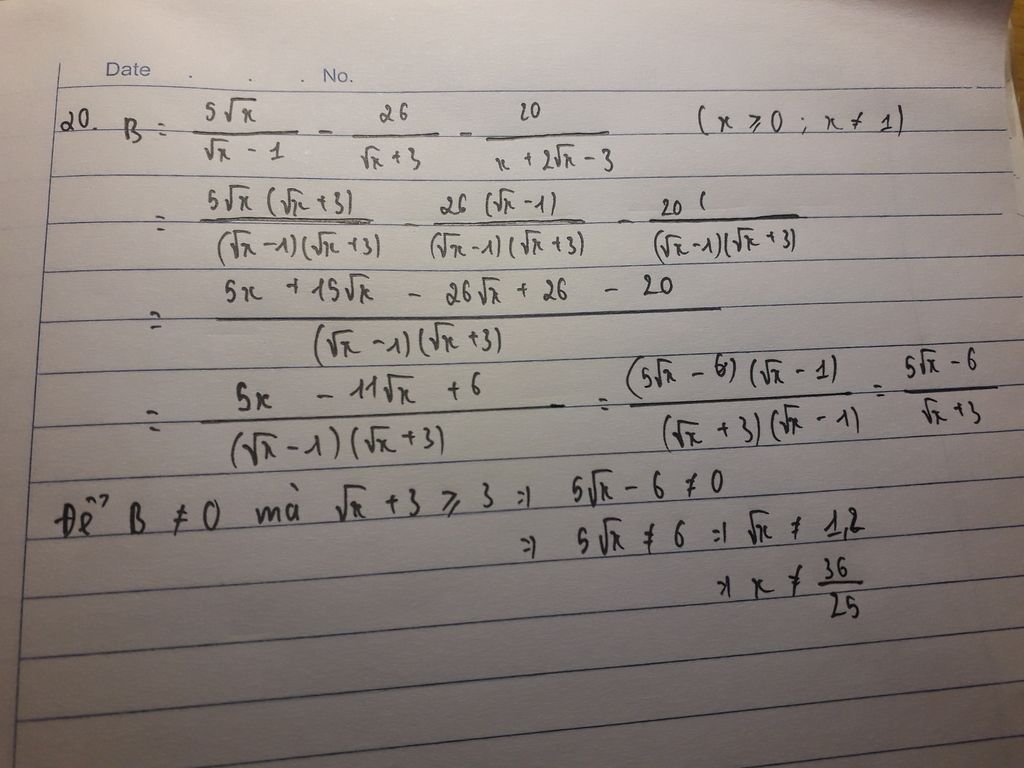 Date . . . No.
20. B = 5√x / (√x - 1) - 26 / (√x + 3) - 20 / (x + 2√x - 3) (x ≥ 0 ; x ≠ 1)
= 5√x (√x + 3) / (√x - 1)(√x + 3) - 26 (√x - 1) / (√x - 1)(√x + 3) - 20 ( / (√x - 1)(√x + 3)
= 5x + 15√x - 26√x + 26 - 20 / (√x - 1)(√x + 3)
= 5x - 11√x + 6 / (√x - 1)(√x + 3) = (5√x - 6)(√x - 1) / (√x + 3)(√x - 1) = 5√x - 6 / √x + 3
Để B ≠ 0 mà √x + 3 ≥ 3 => 5√x - 6 ≠ 0
=> 5√x ≠ 6 => √x ≠ 1,2
=> x ≠ 36/25